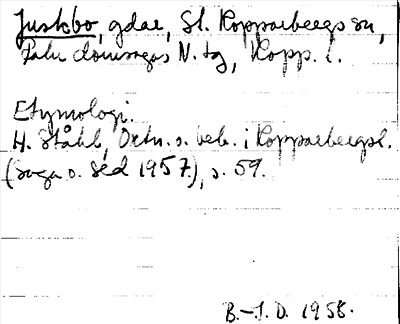 Juskbo, gdae, St. Kopparbergs sn,
Falu domsagas N. tg, Kopp. l.
Etymologi.
H. Ståhl, Ortn. o. beb. i Kopparbergsl.
(Saga o. Sed 1957), s. 59.
B.-I. D. 1958.